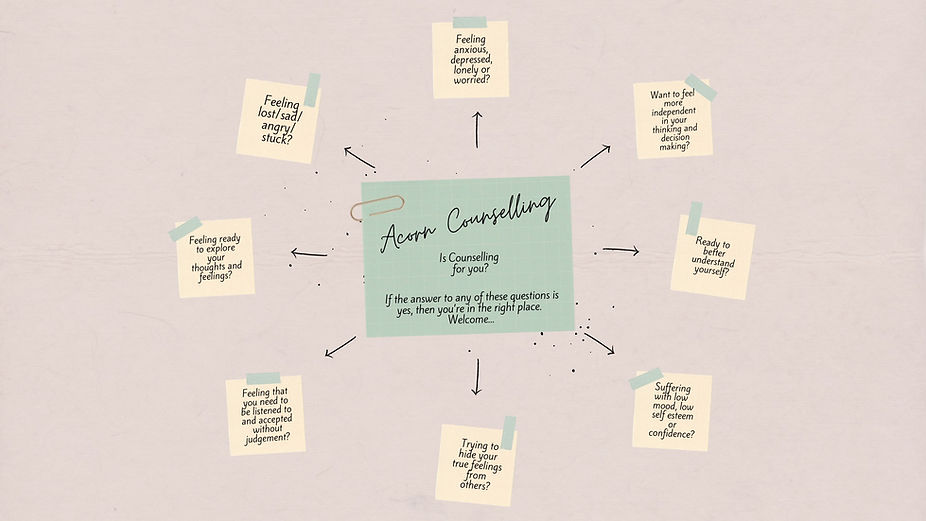 Feeling
anxious,
depressed,
lonely or
worried?
Feeling
lost/sad/
angry/
stuck?
Want to feel
more
independent
in your
thinking and
decision
making?
Acorn Counselling
Is Counselling
for you?
If the answer to any of these questions is
yes, then you're in the right place.
Welcome...
Feeling ready
to explore
your
thoughts and
feelings?
Ready to
better
understand
yourself?
Feeling that
you need to
be listened to
and accepted
without
judgement?
Trying to
hide your
true feelings
from
others?
Suffering
with low
mood, low
self esteem
or
confidence?